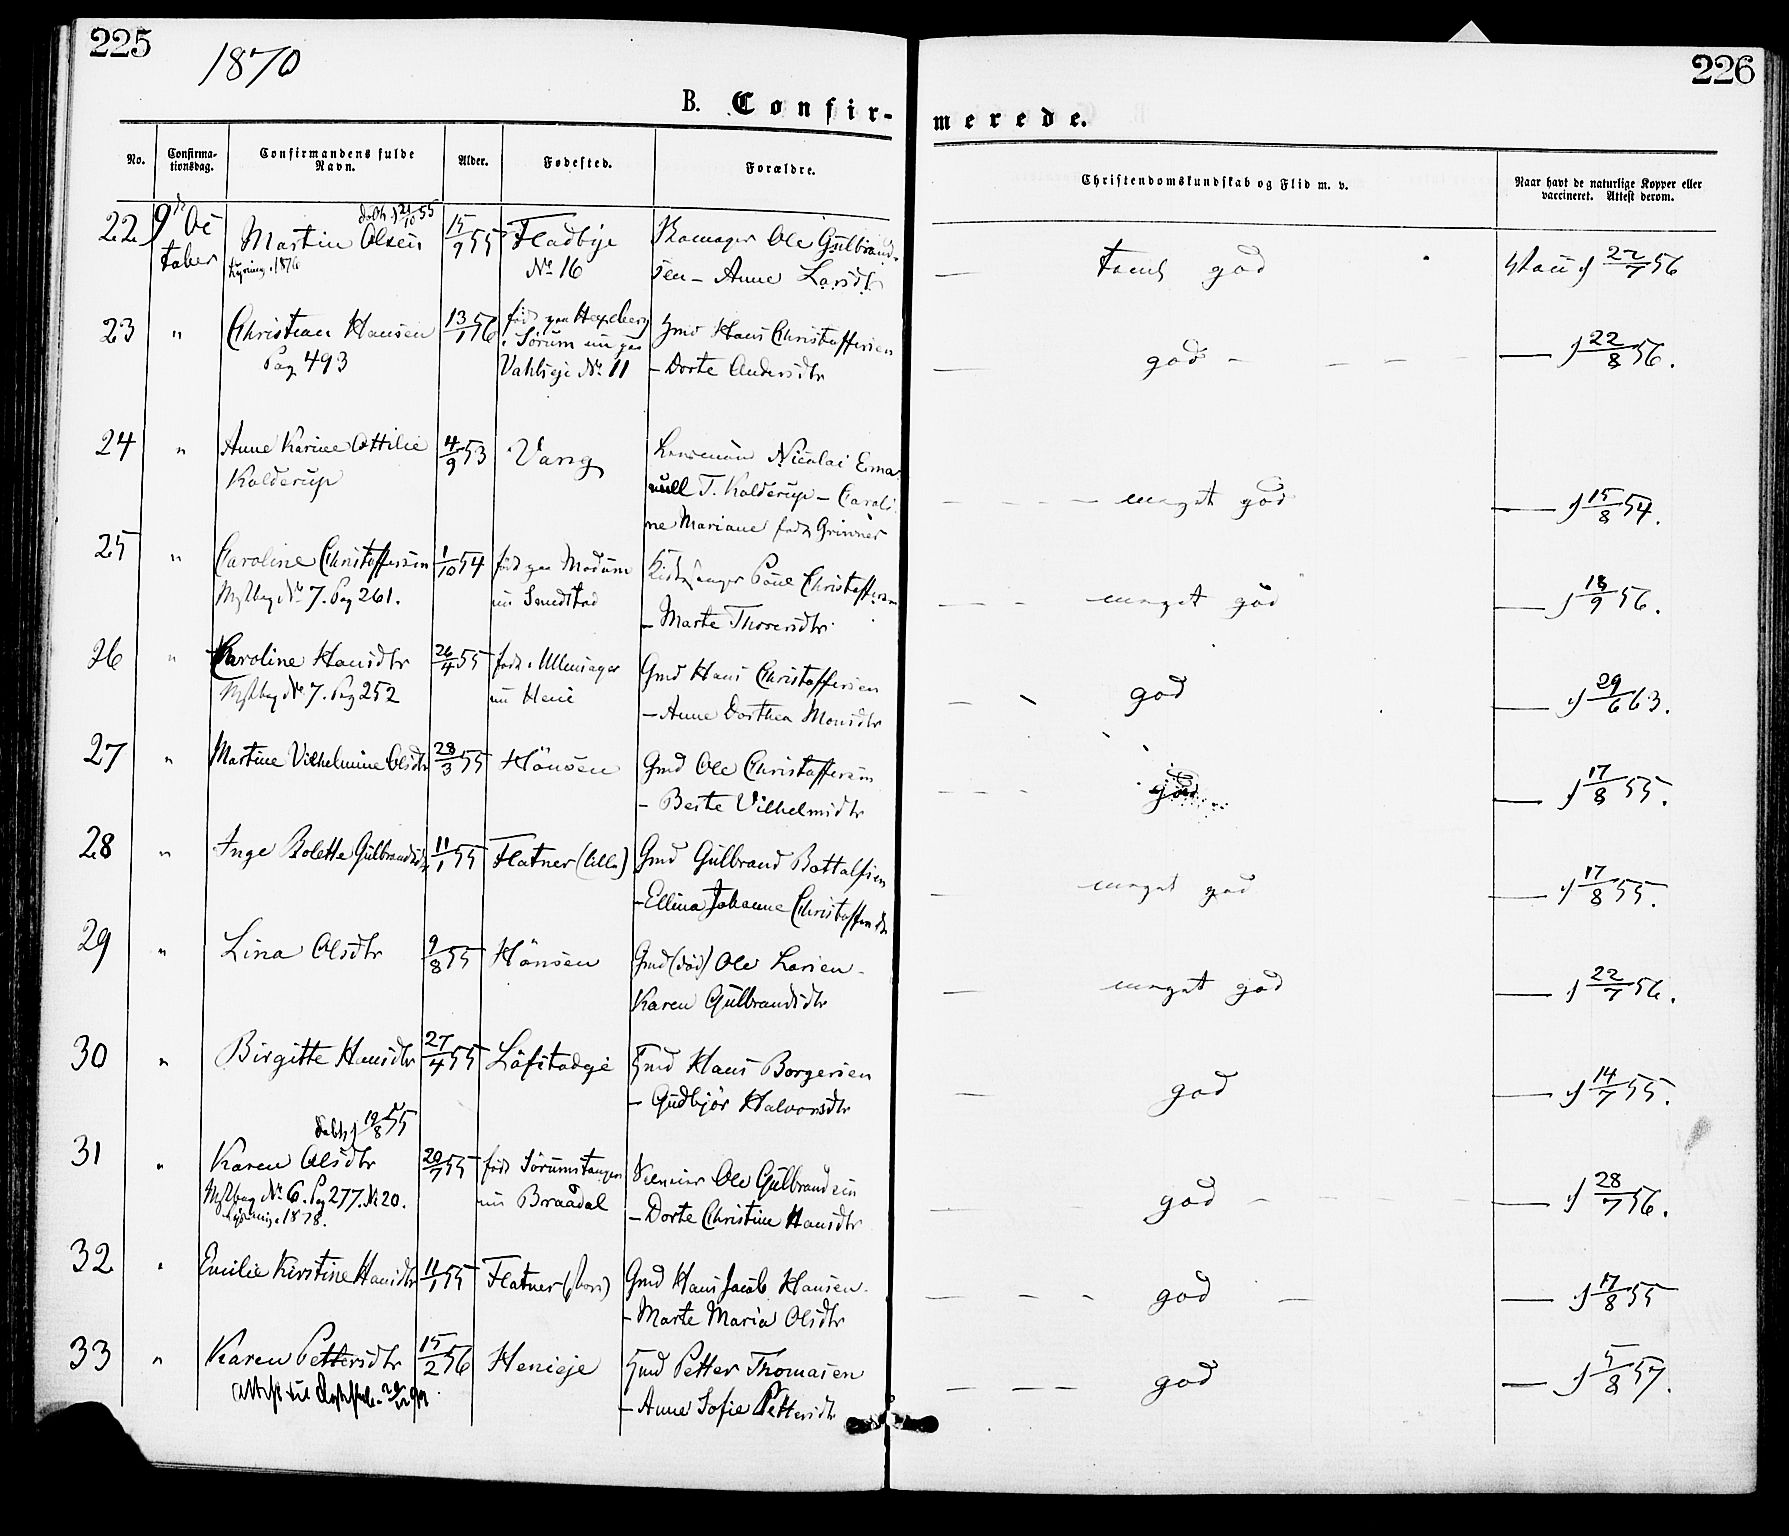 225
226
1870
B. Confir-
merede.
No.
Confirma-
tionsdag.
Confirmandens fulde
Navn.
Alder.
Fødested.
Forældre.
Christendomskundskab og Flid m. v.
Naar havt de naturlige Kopper eller
vaccineret. Attest derom.
døbt 21/10 55
22 9de Oc Martin Olsen 15/9 55 Fladbye Skomager Ole Gulbrand-
tober 1876 No 16 sen - Anne Larsdtr
god 22/7 56
23 " Christian Hansen 13/1 56 født paa Hexeberg Gmd Hans Christoffersen
i Sørum nu paa
Pag 493 No 11 - Dorte Andersdtr
god — 22/8 56.
24 " Anne Karine Ottilie 4/9 53 Vang Lensmand Nicolai Ema
Kolderup nuell T. Kolderup - Caroli
ne Mariane født
meget god — 15/8 54.
25 " Caroline Christoffersen 1/10 54 født paa Modum Poul Christoffersen
No 7. Pag 261. nu - Marte
meget god — 18/9 56.
26 " Karoline Hansdtr 26/4 55 født i Ullensager Gmd Hans Christoffersen
No 7. Pag 252 nu Henie - Anne Dorthea Monsdtr
god — 29/6 63.
27 " Martine Vilhelmine Olsdtr 28/3 55 Hønsen Gmd Ole Christoffersen
- Berte Vilhelmsdtr
god — 17/8 55.
28 " Inge Bolette Gulbrandsdtr 11/1 55 Flatner (lille) Gmd Gulbrand Bottolfsen
- Ellina Johanne Christoffersdtr
meget god — 17/8 55.
29 " Lina Olsdtr 9/8 55 Hønsen Gmd (død) Ole Larsen -
Karen Gulbrandsdtr
meget god — 22/7 56.
30 " Birgitte Hansdtr 27/4 55 Løfstadeje Gmd Hans Borgersen
- Gudbjør Halvorsdtr
god — 14/7 55.
døbt 19/8 55
31 " Karen Olsdtr 20/7 55 født Sørumstangen Ole Gulbrandsen
No 6. Pag 277. No 20. nu Braadal - Dorte Christine Hansdtr
1878.
god — 28/7 56.
32 " Emilie Kirstine Hansdtr 11/1 55 Flatner (store) Gmd Hans Jacob Hansen -
- Marte Maria Olsdtr
god — 17/8 55
33 " Karen Pettersdtr 15/2 56 Henieeje Gmd Petter Thomasen
- Anne Sofie Pettersdtr
god — 5/8 57.